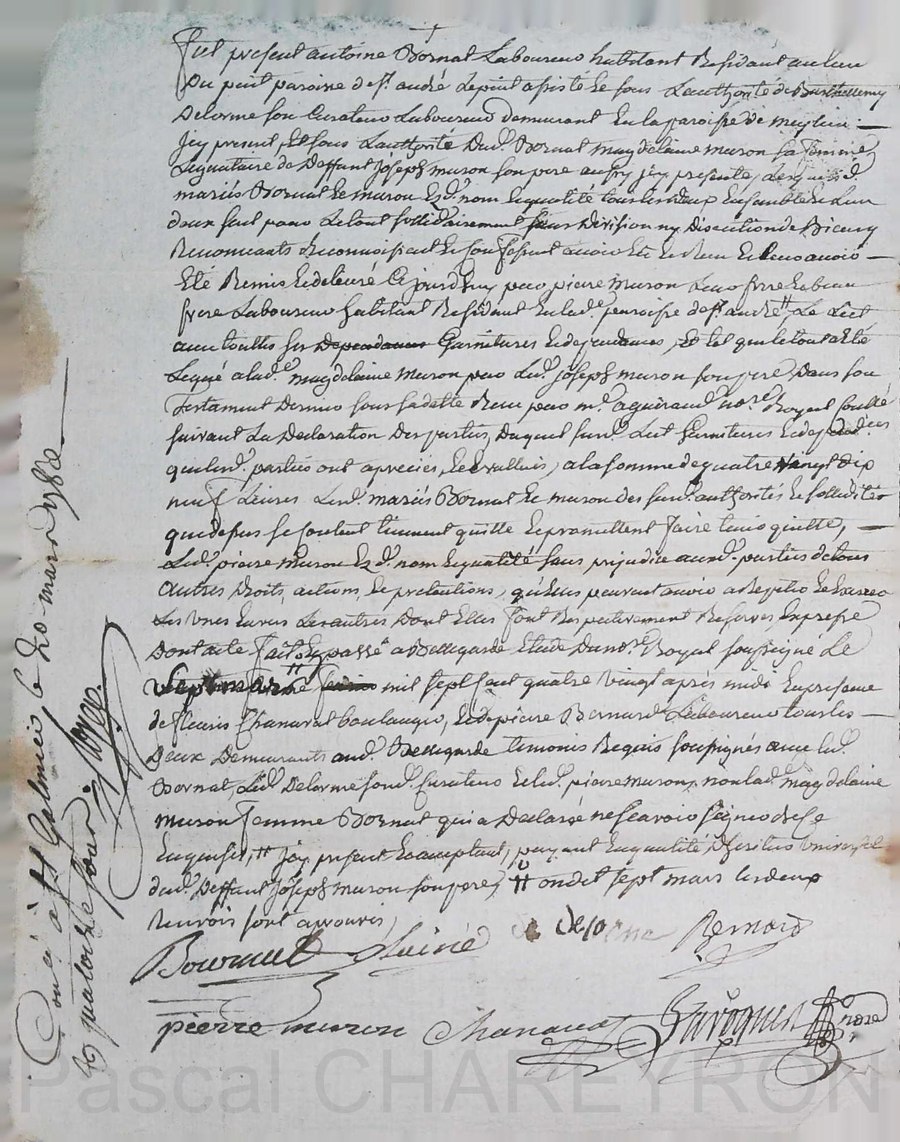 Fut present antoine Bornat Laboureur habitant Residant au lieu
Du puit paroisse de st andré Lepuit assisté et sous Lauthorité de Barthelemy
Delorme son Curateur Laboureur demeurant En la paroisse de meylieu
Jcy present, Et sous Lauthorité Dud. Bornat magdelaine muron sa femme,
Legataire de Deffunt Joseph muron son pere aussy jcy presente, Lesquels d.
mariés Bornat et muron Esd. nom Et qualité tous les deux Ensemble Et Lun
deux seul pour Le tout sollidairement sans Division ny Discution de Biens y
Renonceants Reconnoissent Et Confessent avoir Eté Et Receu Et leur avoir
Eté Remis Et delivré Ce jourdhuy par pierre muron Leur frere Et beau
frere Laboureur habitant Residant En lad. paroisse de st andré Le Lict
avec touttes ses Dependances Garnitures Et dependances, Et tel que le tout a Eté
Legué a lad. magdelaine muron par Led. Joseph muron son pere Dans son
testament Dernier sous sa datte Receu par me. aguiraud nore. Royal
suivant La Declaration Des parties, Duquel susd. Lict Garnitures Et dependances
que lesd. parties ont apreciés, Et Evallués, a la somme de quatre vingt dix
neuf Livres Lesd. mariés Bornat Et muron des susd. authorités Et solliditér
que depuis se Content tiennent quitte Et promettent faire tenir quitte,
Led. pierre muron Esd. nom Et qualité sans prejudice auxd. parties de tous
autres Droits, actions, Et pretentions, qu'Elles peuvent avoir a Repetter Et Exercer
Les Unes Envers Les autres Dont Elles font Respectivement Reserves Expresse
Dont acte fait Et passé a Bellegarde Etude Du nore. Royal soussigné Le
Sept mars mil sept Cent quatre Vingt apres midi En presence
de fleuris Chanavat boulanger, Et de pierre Bernard Laboureur tous les
Deux Demeurants aud. Bellegarde temoins Requis soussignés avec led.
Bornat, Led. Delorme sond. Curateur Et led. pierre muron, non lad. magdelaine
muron femme Bornat qui a Declaré ne scavoir signer de Ce
Enquise, # Jcy present Et acceptant, payant En qualité D'heritier Universel
dud. Deffunt Joseph muron son pere, # ondit sept mars Les deux
Renvois sont aprouvés,
Bournat Delorme Bernard
pierre muron Chanavat nore
Con.é à St Galmier le 20 mars 1780